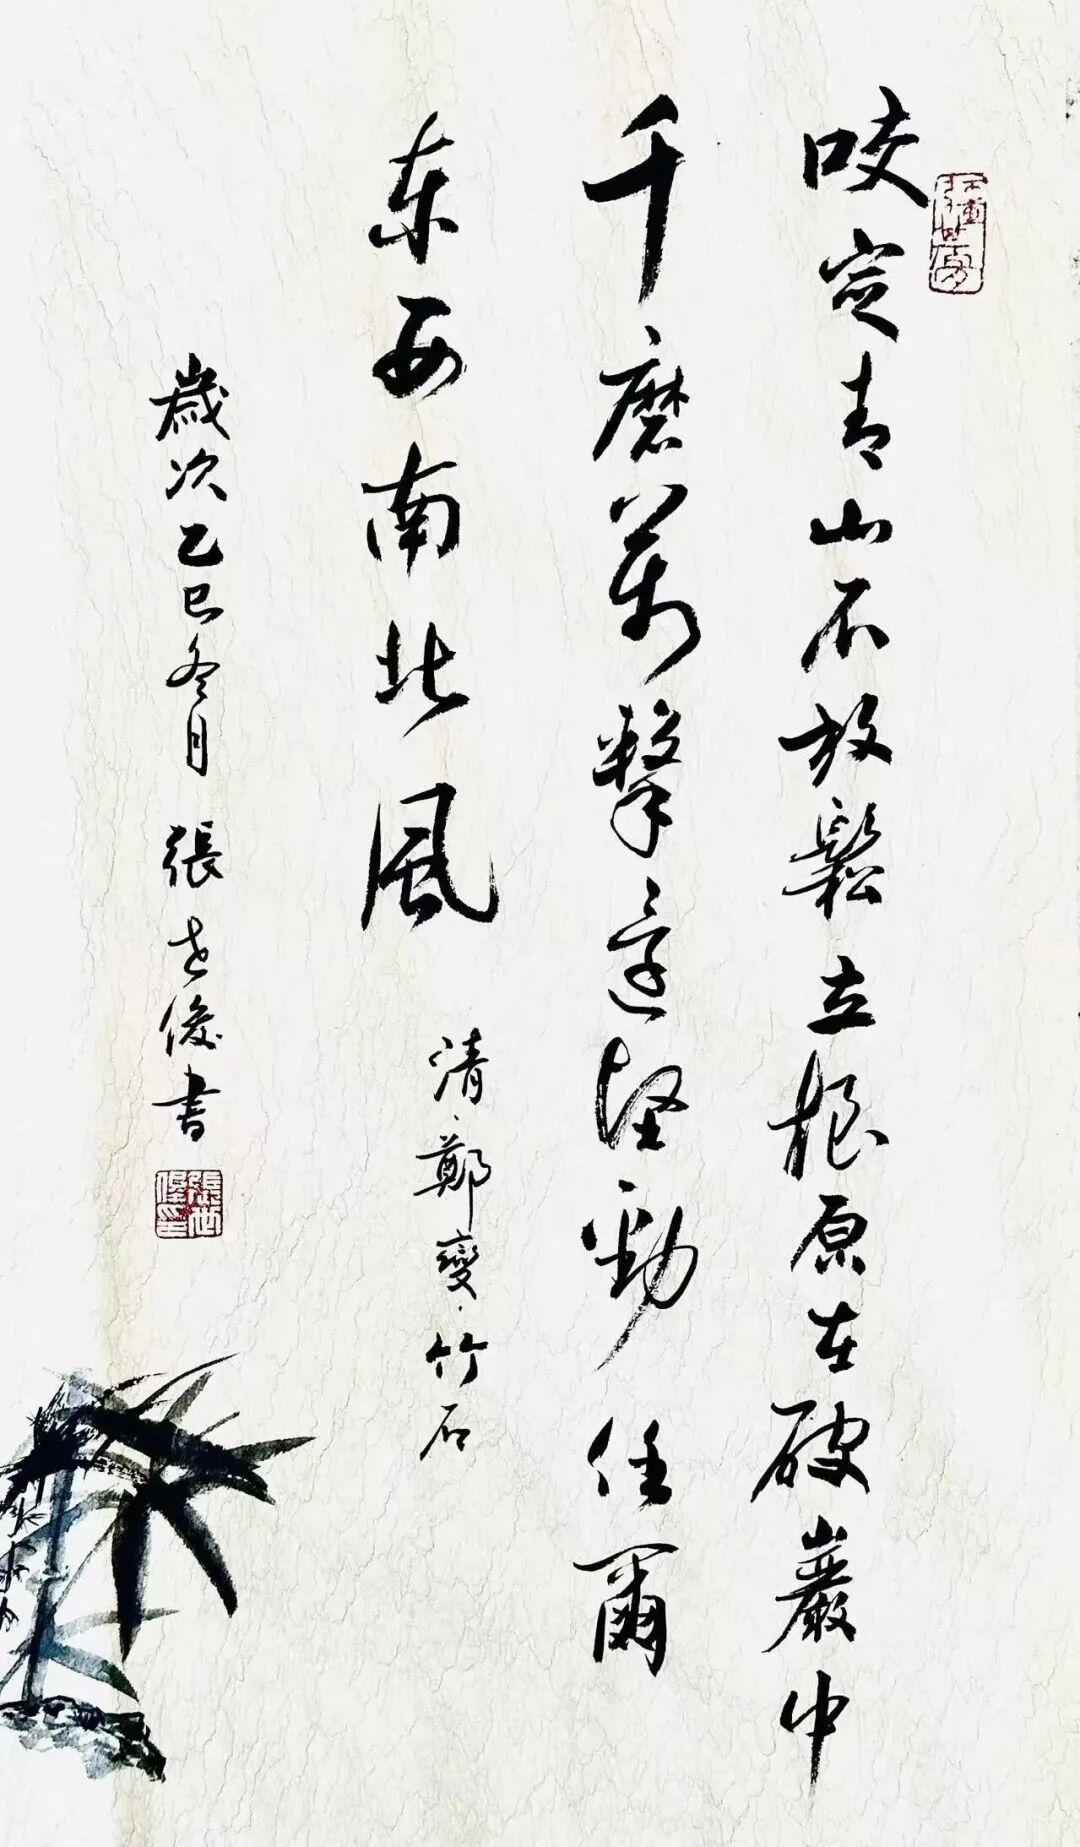 咬定青山不放鬆立根原在破巖中
千磨萬擊還堅勁任爾
东西南北風
清·鄭燮·竹石
歲次乙巳冬月 張世俊書
張世俊印